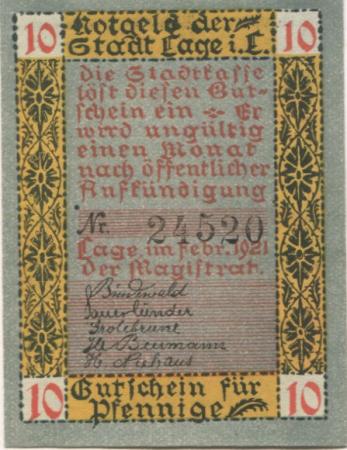 10 Notgeld der 10
Stadt Lage i. L.
Die Stadtkasse
löst diesen Gut-
schein ein ÷ Er
wird ungültig
einen Monat
nach öffentlicher
Aufkündigung
Nr. 24520
Lage, im Febr. 1921
Der Magistrat.
Sauerländer
Grotebrune
H. Niehaus
10 Gutschein für 10
Pfennige